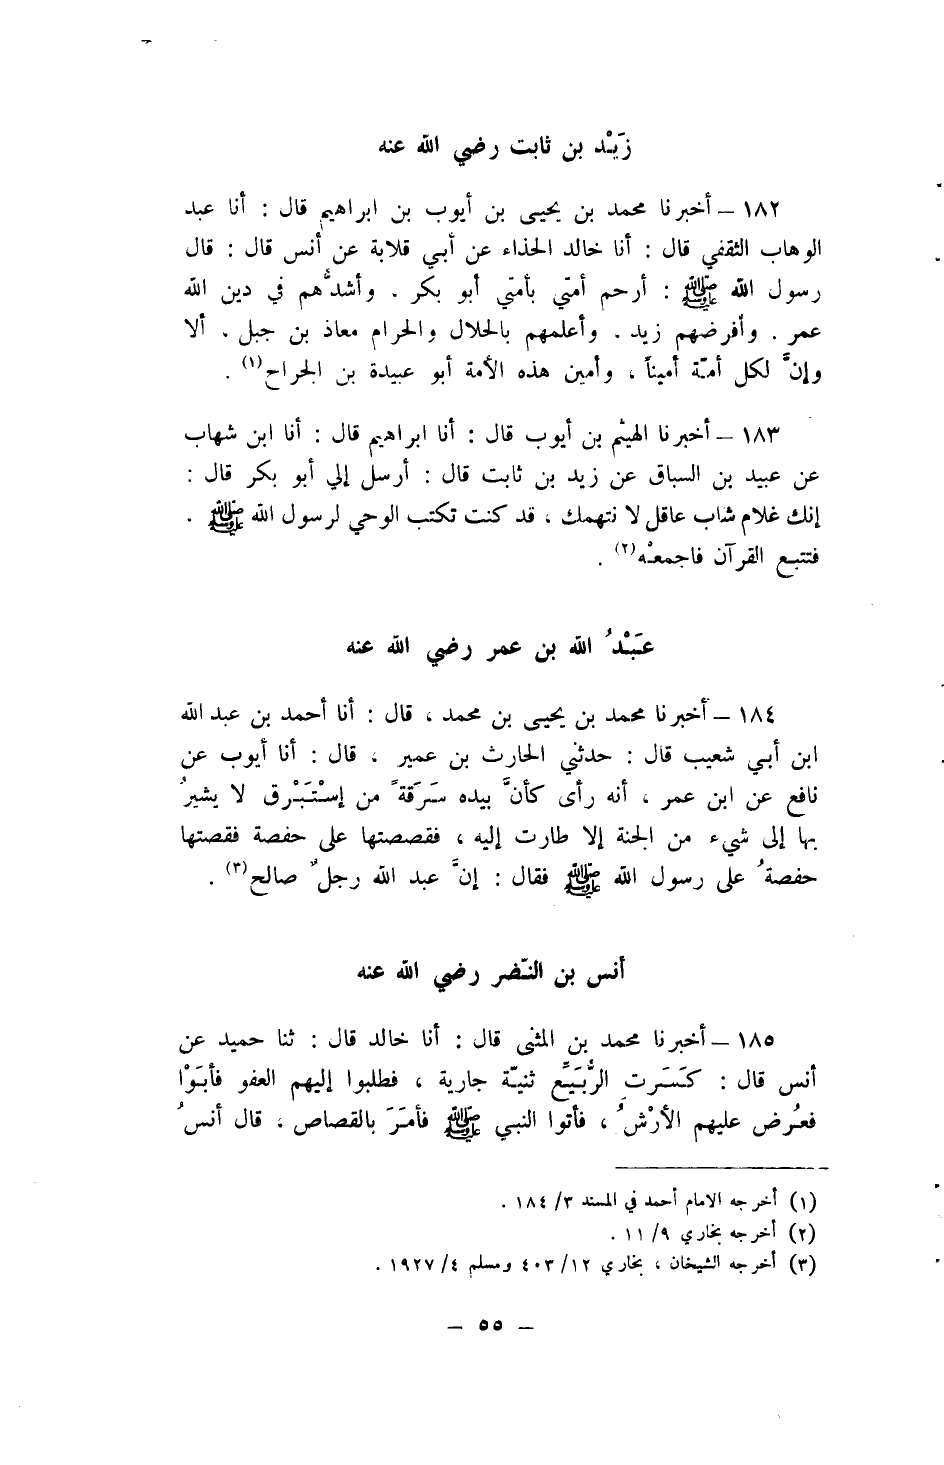 زَيْد بن ثابت رضي الله عنه
١٨٢ – أخبرنا محمد بن يحيى بن أيوب بن ابراهيم قال : أنا عبد
الوهاب الثقفي قال : أنا خالد الحذاء عن أبي قلابة عن أنس قال : قال
رسول الله ﷺ : أرحم أمتي بأمتي أبو بكر . وأشدُّهم في دين الله
عمر . وأفرضهم زيد . وأعلمهم بالحلال والحرام معاذ بن جبل . ألا
وإنَّ لكل أمّة أميناً ، وأمين هذه الأمة أبو عبيدة بن الجراح(١) .
١٨٣ – أخبرنا الهيثم بن أيوب قال : أنا ابراهيم قال : أنا ابن شهاب
عن عبيد بن السباق عن زيد بن ثابت قال : أرسل إلي أبو بكر قال :
إنك غلام شاب عاقل لا نتهمك ، قد كنت تكتب الوحي لرسول الله ﷺ .
فتتبع القرآن فاجمعْه(٢) .
عَبْدُ الله بن عمر رضي الله عنه
١٨٤ – أخبرنا محمد بن يحيى بن محمد ، قال : أنا أحمد بن عبد الله
ابن أبي شعيب قال : حدثني الحارث بن عمير ، قال : أنا أيوب عن
نافع عن ابن عمر ، أنه رأى كأنَّ بيده سَرَقةً من إسْتَبْرق لا يشيرُ
بها إلى شيء من الجنة إلا طارت إليه ، فقصصتها على حفصة فقصتها
حفصةُ على رسول الله ﷺ فقال : إنَّ عبد الله رجلٌ صالح(٣) .
أنس بن النّضر رضي الله عنه
١٨٥ – أخبرنا محمد بن المثنى قال : أنا خالد قال : ثنا حميد عن
أنس قال : كَسَرتِ الرُّبَيِّع ثنيّة جارية ، فطلبوا إليهم العفو فأبَوْا
فعُرض عليهم الأرْشُ ، فأتوا النبي ﷺ فأمَرَ بالقصاص ، قال أنسُ
(١) أخرجه الامام أحمد في المسند ٣/ ١٨٤ .
(٢) أخرجه بخاري ٩/ ١١ .
(٣) أخرجه الشيخان ، بخاري ١٢/ ٤٠٣ ومسلم ٤/ ١٩٢٧ .
– ٥٥ –